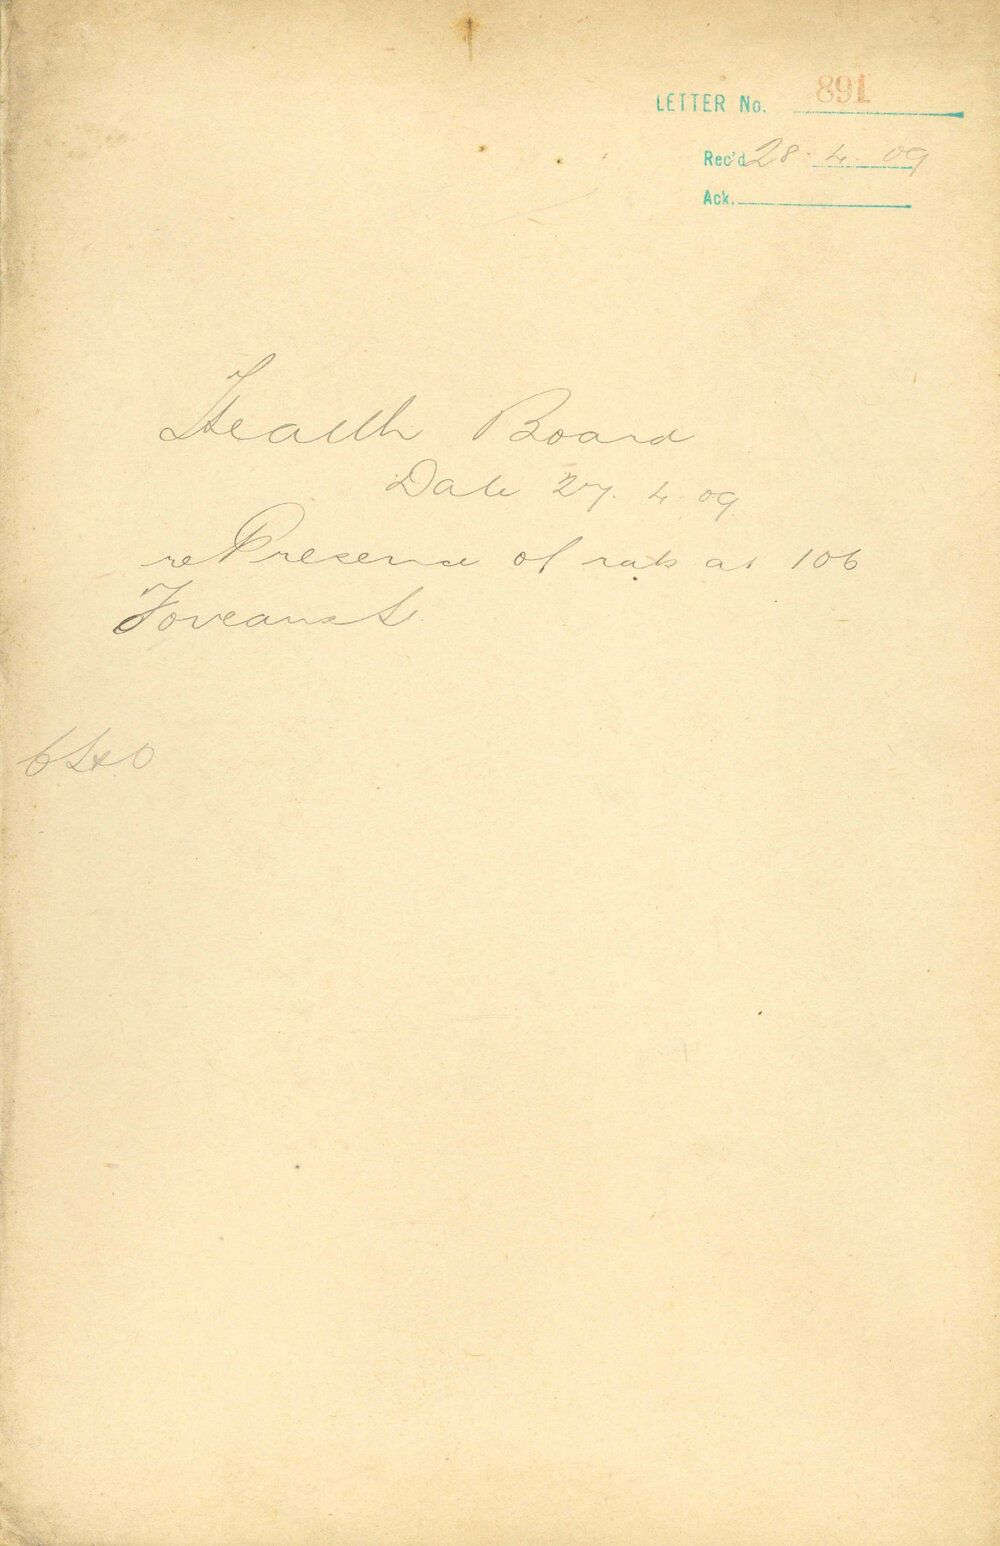 LETTER No. 891
Rec'd 28. 4. 09
Ack.
Health Board
Date 27. 4. 09.
re Presence of rats at 106
Foveaux St.